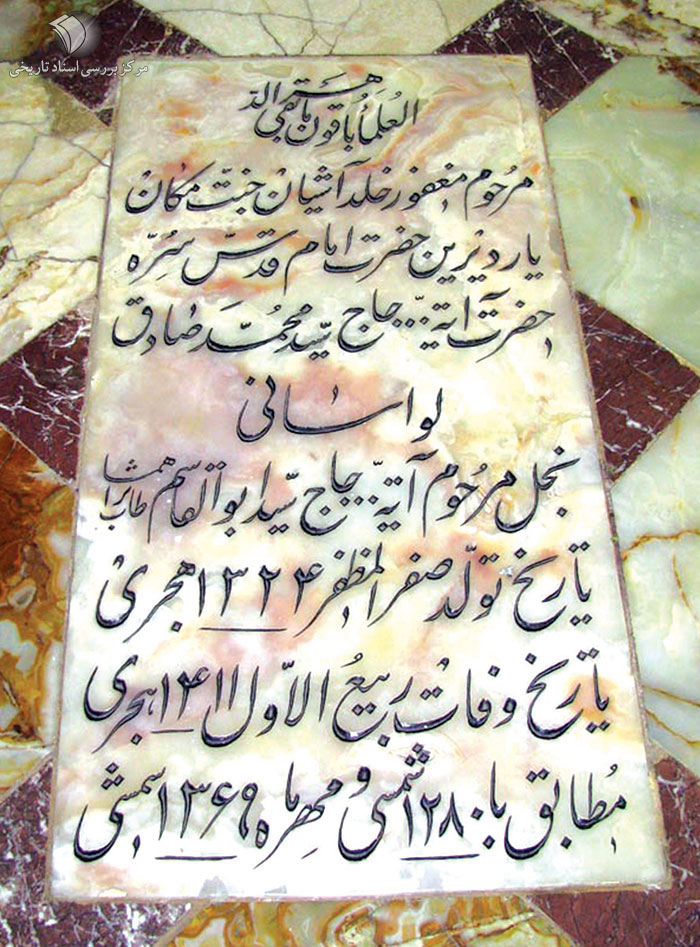 مرکز بررسی اسناد تاریخی
العُلَماءُ باقُونَ ما بَقِیَ الدّهر
مرحُوم مغفور خلد آشیان جنّت مکان
یار دیرین حضرت امام قدّس سِرُّه
حضرت آیة... حاج سیّد محمّد صادق
لواسانی
نجل مرحُوم آیة... حاج سیّد ابوالقاسم طاب ثراهما
تاریخ تولّد صفر المظفر ۱۳۲۴ هجری
تاریخ وفات ربیعُ الاوّل ۱۴۱۱ هجری
مُطابق با ۱۲۸۰ شمسی و مهر ماه ۱۳۶۹ شمسی